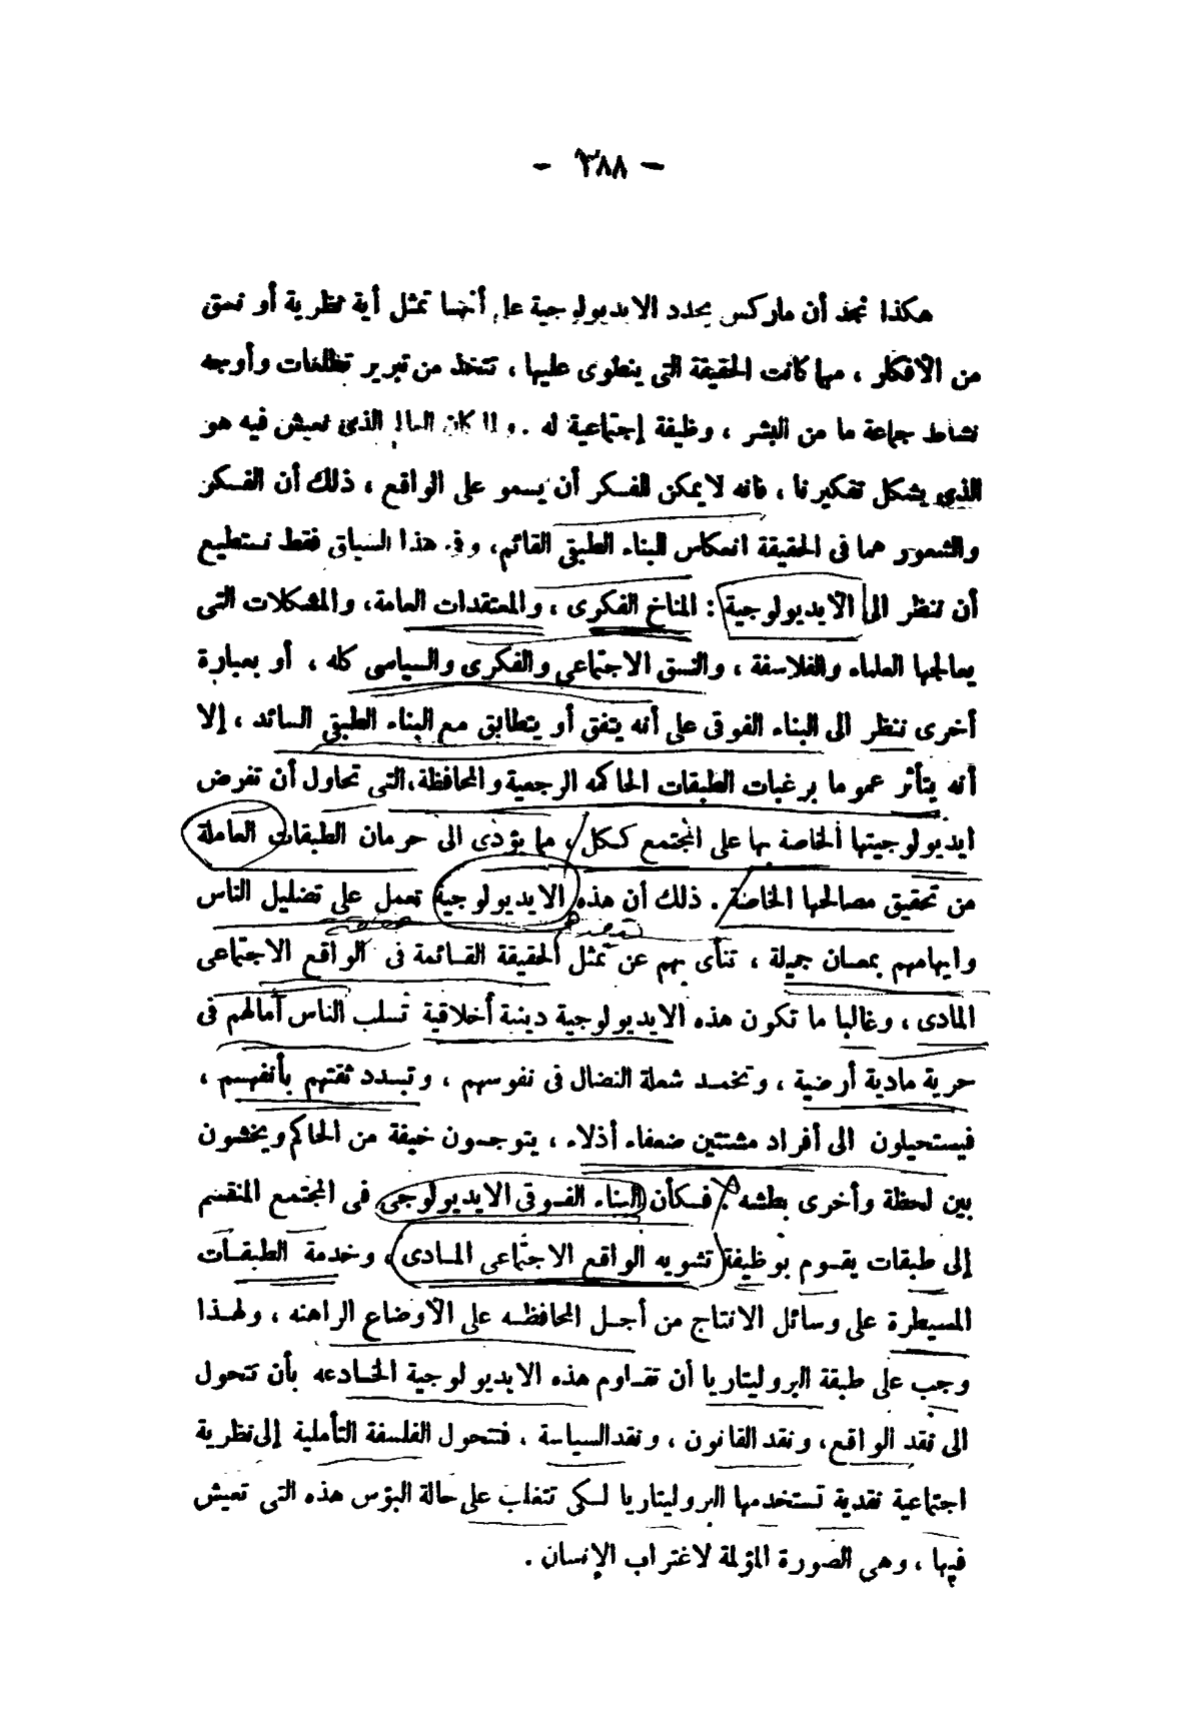 - ٣٨٨ -
هكذا نجد أن ماركس يحدد الايديولوجية على أنها تمثل أية نظرية أو نسق
من الأفكار ، مهما كانت الحقيقة التى ينطوى عليها ، تتخذ من تبرير تطلعات وأوجه
نشاط جماعة ما من البشر ، وظيفة إجتماعية له . ولما كان العالم الذى نعيش فيه هو
الذى يشكل تفكيرنا ، فانه لا يمكن للفكر أن يسمو على الواقع ، ذلك أن الفكر
والشعور هما فى الحقيقة انعكاس للبناء الطبقى القائم، وفى هذا السياق فقط نستطيع
أن ننظر الى الايديولوجية : المناخ الفكرى ، والمعتقدات العامة، والمشكلات التى
يعالجها العلماء والفلاسفة ، والنسق الاجتماعى والفكرى والسياسى كله ، أو بعبارة
أخرى ننظر الى البناء الفوقى على أنه يتفق أو يتطابق مع البناء الطبقى السائد ، إلا
أنه يتأثر عموما برغبات الطبقات الحاكمه الرجعية والمحافظة،التى تحاول أن تفرض
ايديولوجيتها الخاصة بها على المجتمع ككل ، مما يؤدى الى حرمان الطبقات العاملة
من تحقيق مصالحها الخاصة . ذلك أن هذه الايديولوجية تعمل على تضليل الناس
وايهامهم بمعان جميلة ، تنأى بهم عن تمثل الحقيقة القائمة فى الواقع الاجتماعى
المادى ، وغالبا ما تكون هذه الايديولوجية دينية أخلاقية تسلب الناس أمالهم فى
حرية مادية أرضية ، وتخمد شعلة النضال فى نفوسهم ، وتبدد ثقتهم بأنفسهم ،
فيستحيلون الى أفراد مشتتين ضعفاء أذلاء ، يتوجسون خيفة من الحاكم ويخشون
بين لحظة وأخرى بطشه . فكأن البناء الفوقى الايديولوجى فى المجتمع المنقسم
إلى طبقات يقوم بوظيفة تشويه الواقع الاجتماعى المادى ، وخدمة الطبقات
المسيطرة على وسائل الانتاج من أجل المحافظه على الأوضاع الراهنه ، ولهذا
وجب على طبقة البروليتاريا أن تقاوم هذه الايديولوجية الخادعه بأن تتحول
الى نقد الواقع، ونقد القانون ، ونقد السياسة ، فتتحول الفلسفة التأملية إلى نظرية
اجتماعية نقدية تستخدمها البروليتاريا لكى تتغلب على حالة البؤس هذه التى تعيش
فيها ، وهى الصورة المؤلمة لاغتراب الإنسان .